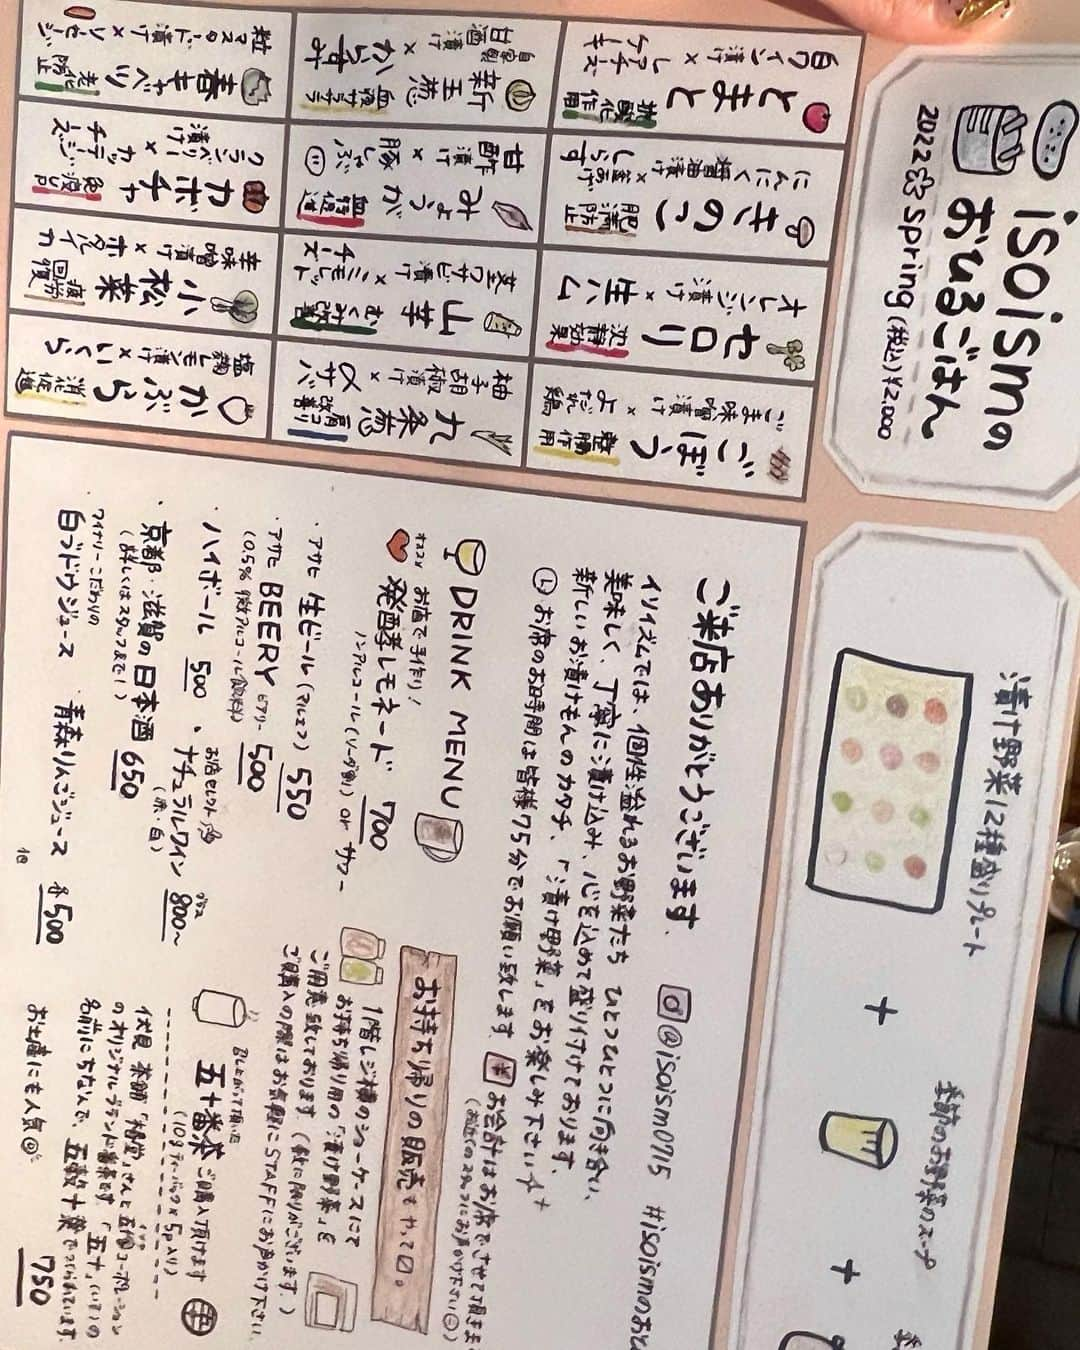 isoismの
おひるごはん
2022 Spring (税込) ¥2,000
漬け野菜12種盛りプレート
+
季節のお野菜のスープ
+
とまと
抗酸化作用
白ワイン漬け×レアチーズケーキ
きのこ
肥満防止
にんにく醤油漬け×釜あげしらす
セロリ
沈静効果
オレンジ漬け×生ハム
ごぼう
整腸作用
ごま味噌漬け×よだれ鶏
新玉葱
血液サラサラ
自家製甘酒漬け×からすみ
みょうが
血行促進
甘酢漬け×豚しゃぶ
山芋
むくみ改善
茎ワサビ漬け×ミモレットチーズ
九条葱
肩コリ改善
柚子胡椒漬け×〆サバ
春キャベツ
老化防止
粒マスタード漬け×ソーセージ
カボチャ
免疫UP
クランベリー漬け×カッテージチーズ
小松菜
疲労回復
辛味噌漬け×ホタルイカ
かぶら
消化促進
塩麹レモン漬け×いくら
ご来店ありがとうございます。
@isoism0715 #isoismのおひ
イソイズムでは、個性溢れるお野菜たち ひとつひとつに向き合い、
美味しく、丁寧に漬け込み、心を込めて盛り付けております。
新しいお漬けもんのカタチ、「漬け野菜」をお楽しみ下さい
お席のお時間は皆様75分でお願い致します。
お会計はお席でさせて頂きま
(お近くのスタッフにお声がけ下さい)
DRINK MENU
オススメ お店で手作り!
発酵レモネード 700
ノンアルコール(ソーダ割) or サワー
・アサヒ 生ビール(マルエフ) 550
・アサヒ BEERY ビアリー 500
(0.5% 微アルコール飲料)
・ハイボール 500
・お店セレクト ナチュラルワイン グラス 800〜
(赤・白)
・京都・滋賀の日本酒 650
(詳しくはスタッフまで!)
・ワイナリーこだわりの
白ブドウジュース ・青森りんごジュース 各500
他
お持ち帰りの販売もやってます。
1階レジ横のショーケースにて
お持ち帰り用の「漬け野菜」を
ご用意致しております。(数に限りがございます。)
ご購入の際はお気軽にSTAFFにお声がけ下さい。
召し上がって頂いた
五十番茶 ご購入頂けます
(10gティーバック×5p入り)
伏見 茶舗「椿堂」さんと五十家コーポレーション
のオリジナルブランド番茶です。「五十」(いそ)の
名前にちなんで、五穀十葉でつくられています。
お土産にも人気 750